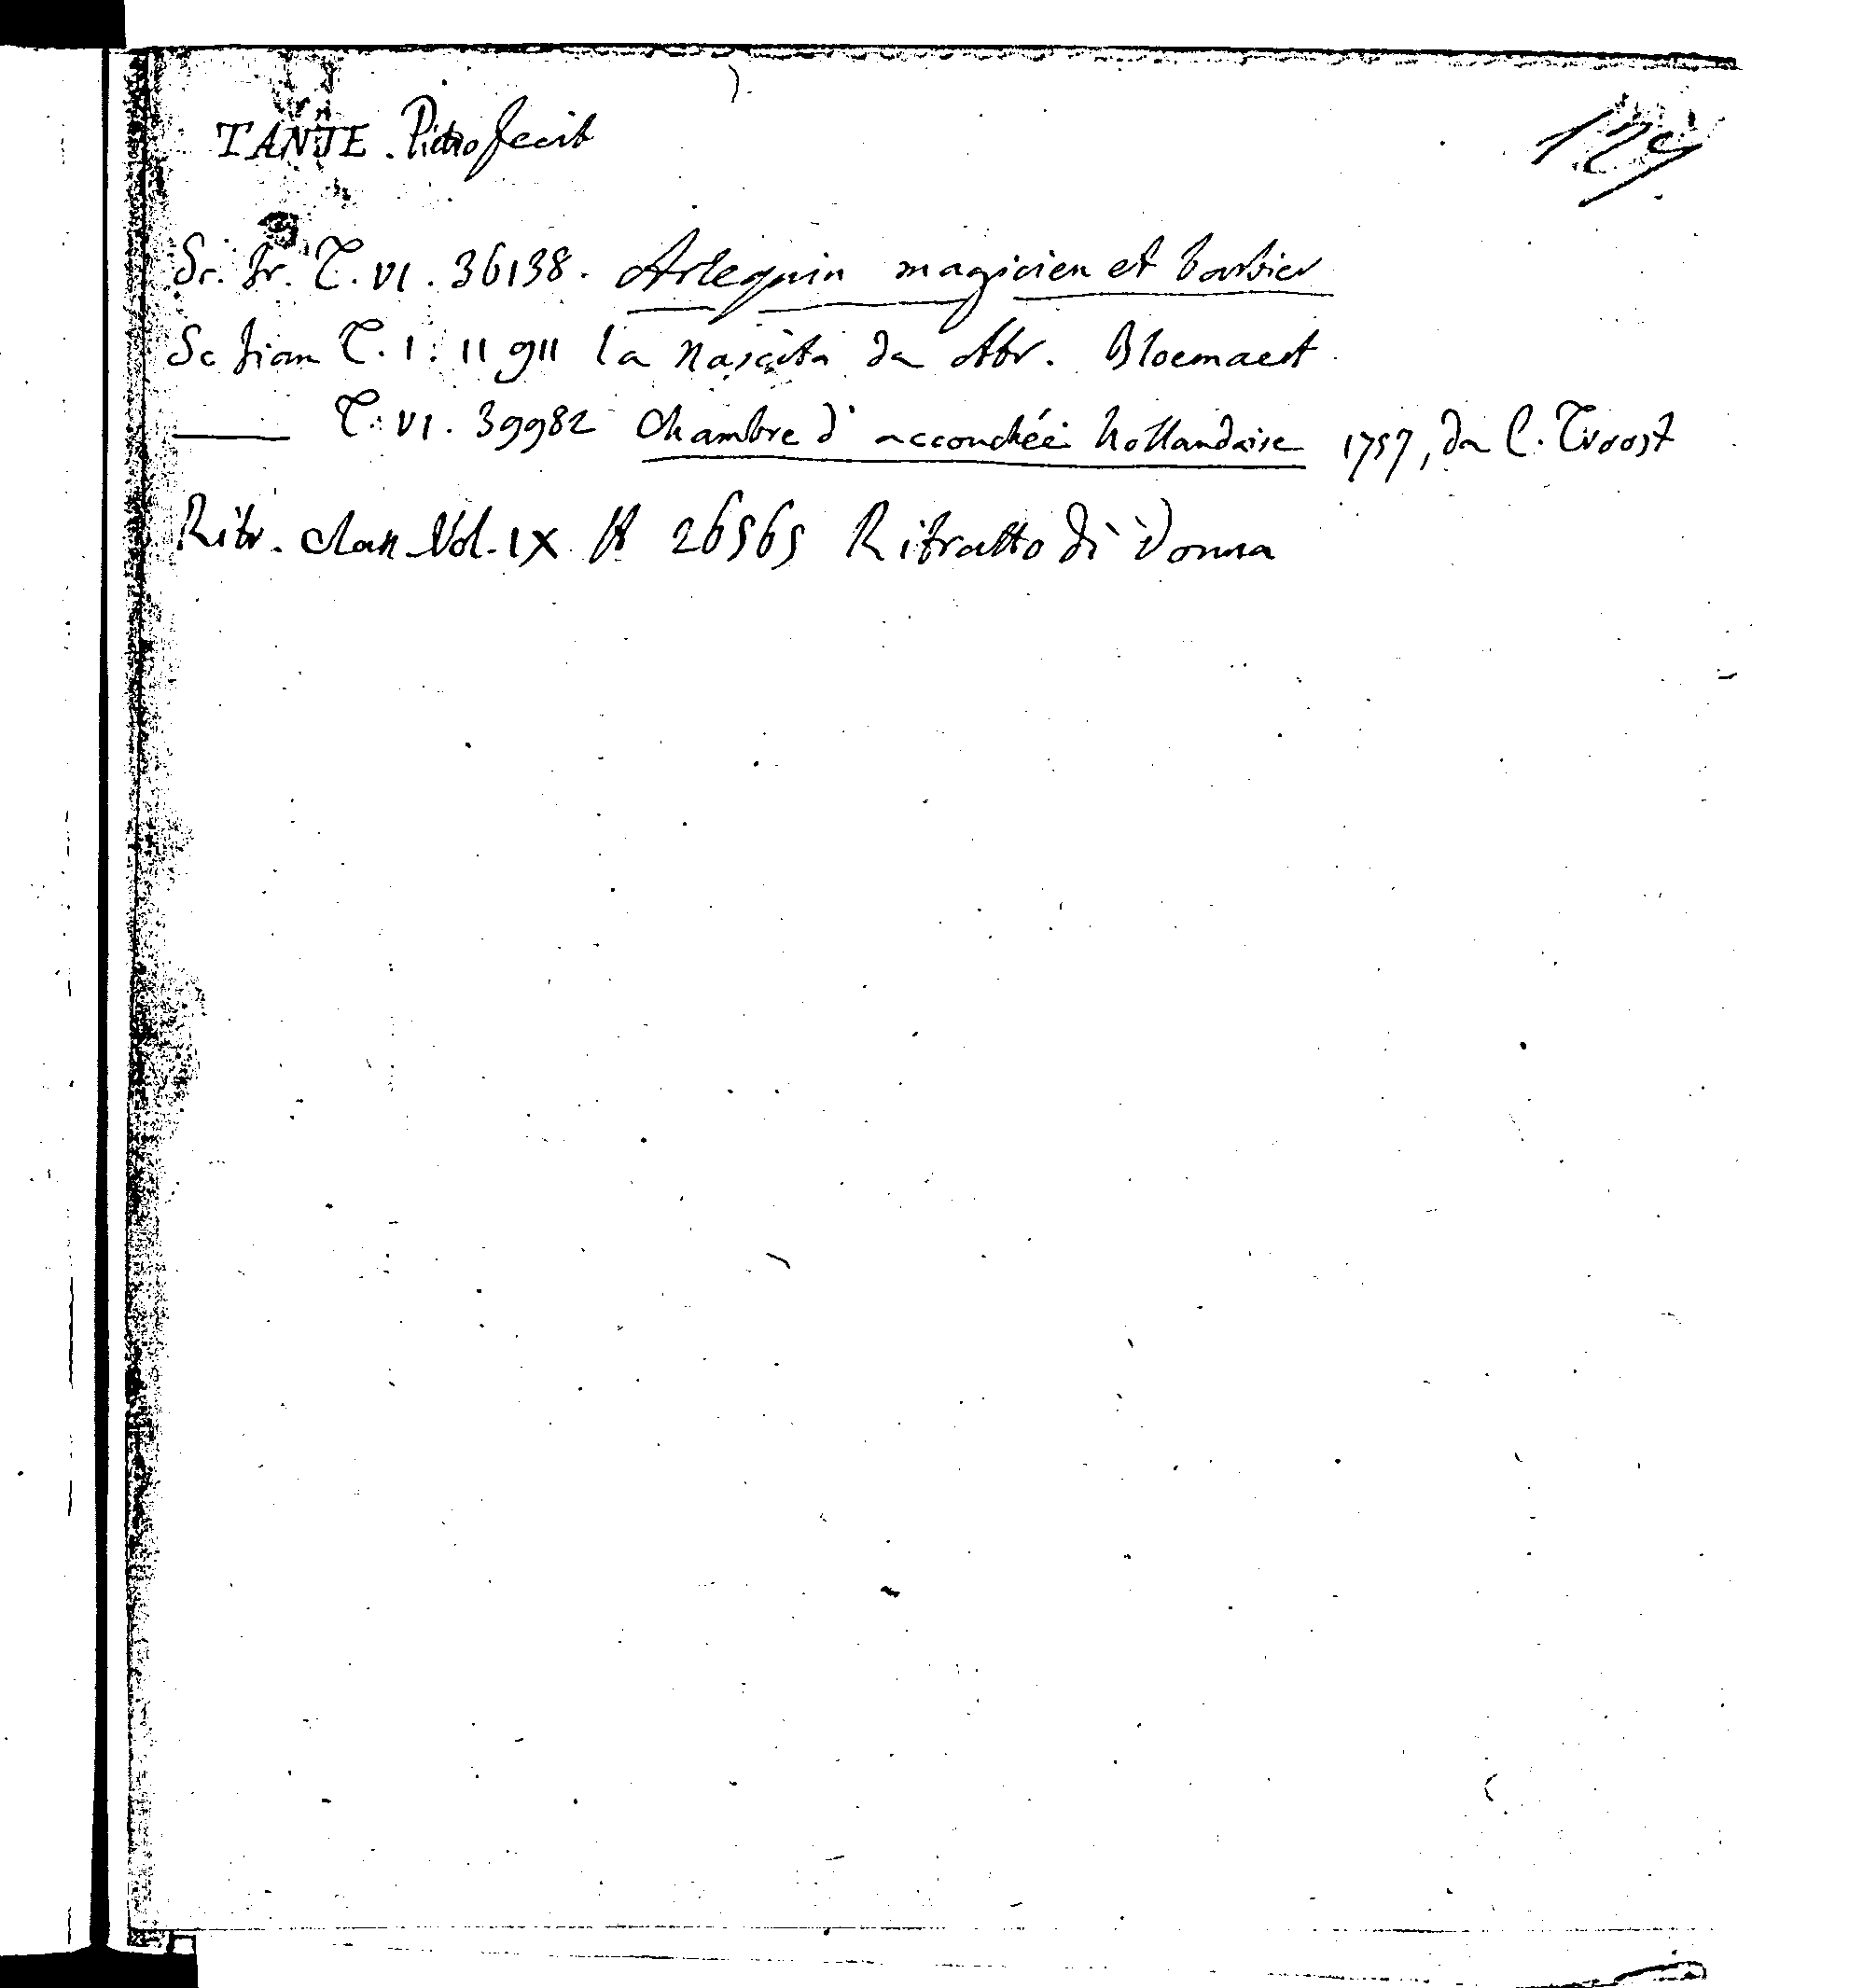 TANJE. Pietro fecit
129
Sc. fr. T. VI. 36138. Arlequin magicien et barbier
Sc fiam T. I. 11911 la Nascita da Abr. Bloemaert
T. VI. 39982 Chambre d'accouchée hollandaise 1757, da C. Troost
Ritr. clas. Vol. IX 26565 Ritratto di Donna